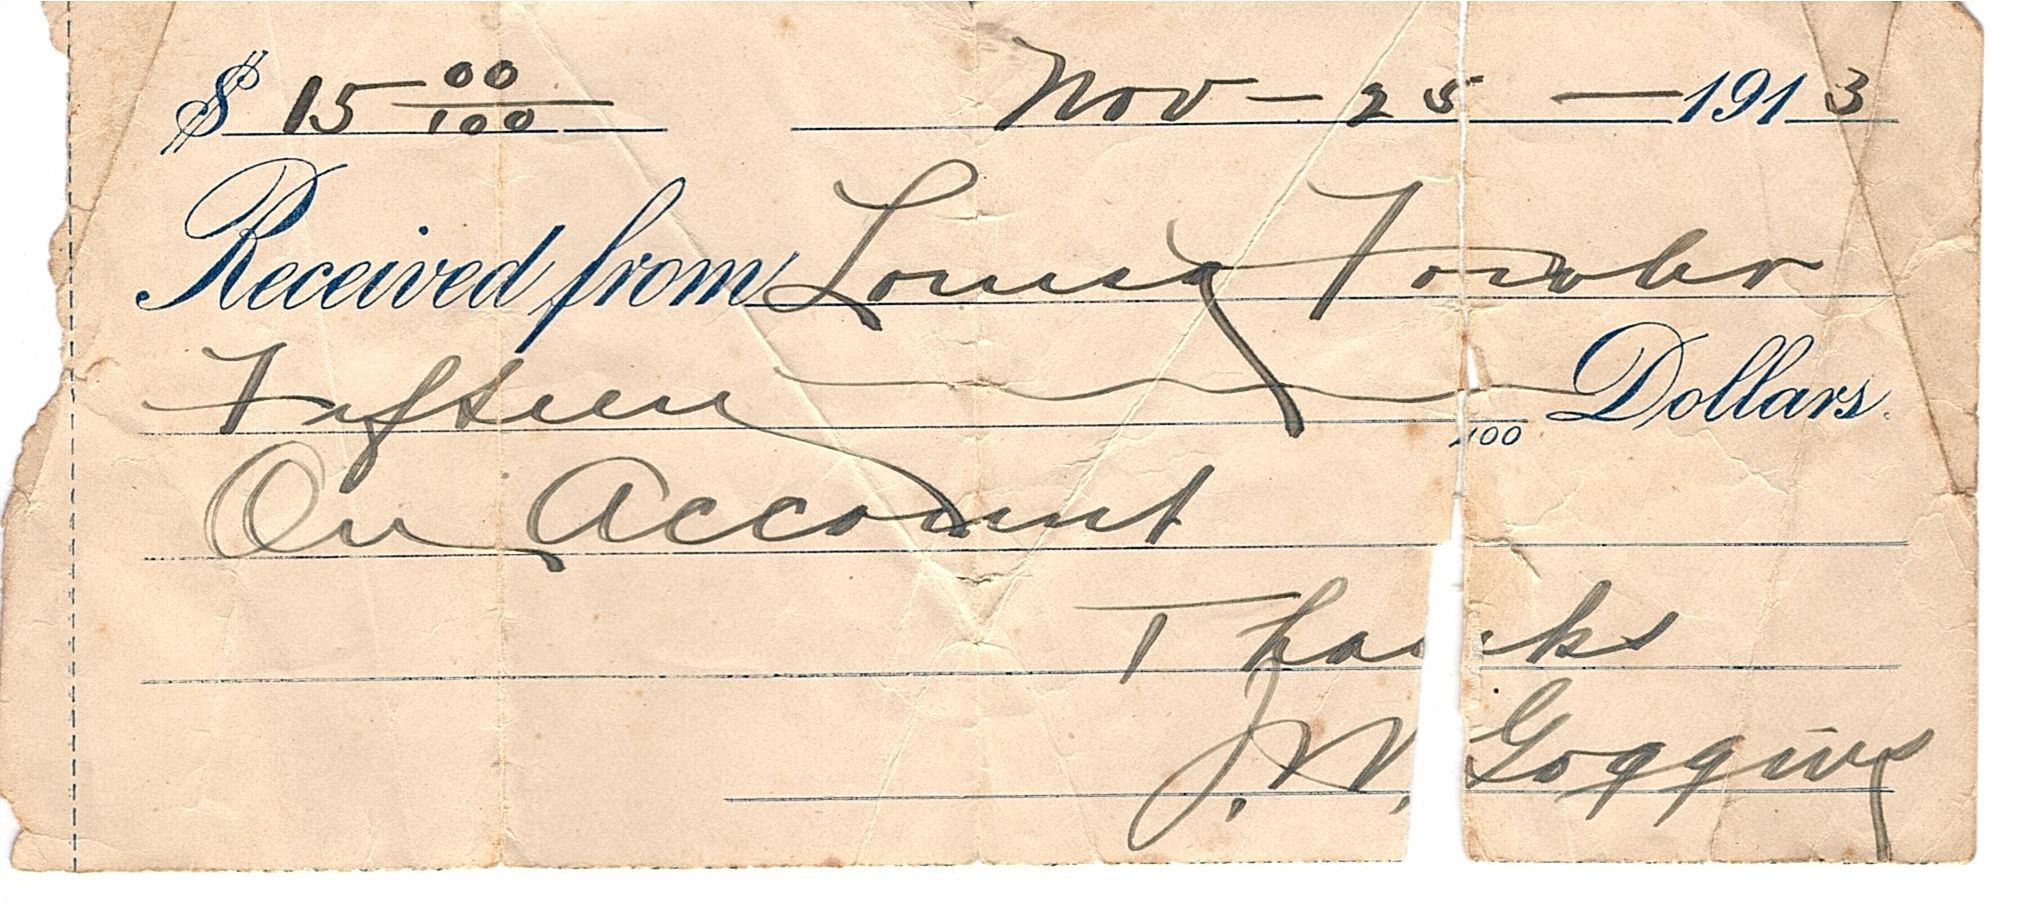 $ 15 00/100 Nov - 25 - 1913
Received from Louisa Fowler
Fifteen /100 Dollars.
On Account
Thanks
J. W. Goggins